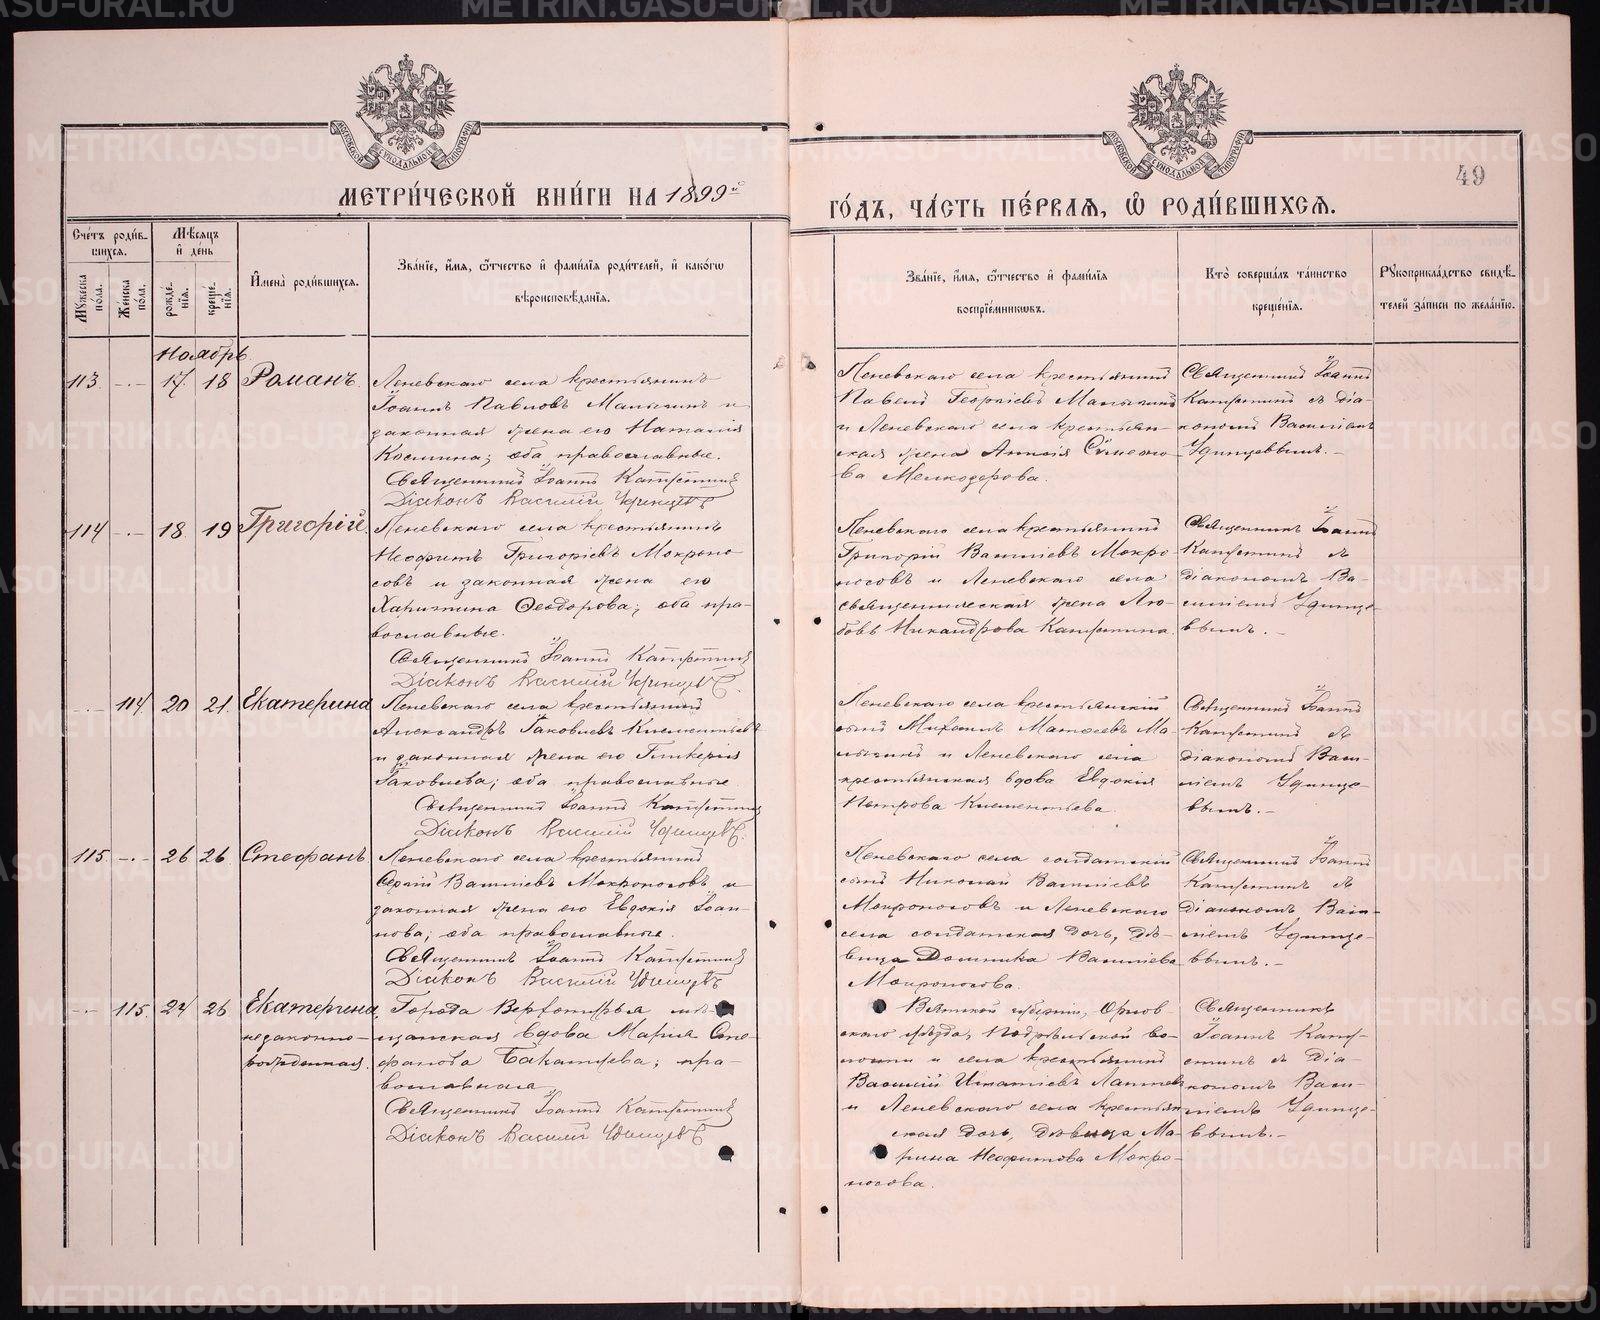 МЕТРИ́ЧЕСКОЙ КНИ́ГИ НА 1899й
ГО́ДЪ, ЧА́СТЬ ПЕ́РВАѦ, Ѡ РОДИ́ВШИХСѦ.
49
Сче́тъ роди́в-
шихсѧ.
Мꙋжеска по́ла.
Же́нска по́ла.
Мѣ́сѧцъ и де́нь
рожде́-
нїѧ.
креще́-
нїѧ.
Имена̀ роди́вшихсѧ.
Зва́нїе, и́мѧ, ѻ́тчество и фами́лїѧ роди́телей, и како́гѡ
вѣроисповѣ́данїѧ.
Зва́нїе, и́мѧ, ѻ́тчество и фами́лїѧ
воспрїе́мникѡвъ.
Кто̀ соверша́лъ та́инство
креще́нїѧ.
Рꙋкоприкла́дство свидѣ́-
телей за́писи по жела́нїю.
Ноябрь
113. - 17 18 Романъ.
Леневскаго села крестьянинъ
Іоаннъ Павловъ Малыгинъ и
законная жена его Наталія
Космина; оба православные.
Священникъ Іоаннъ
Діаконъ Василій Удинцевъ
Леневскаго села крестьянинъ
Павелъ Георгіевъ Малыгинъ
и Леневскаго села крестьян-
ская жена Анисія Симео-
ва Мелкозерова.
Священникъ Іоаннъ
съ діа-
кономъ Василіемъ
Удинцевымъ.
114 - 18. 19 Григорій.
Леневскаго села крестьянинъ
Неофитъ Григоріевъ Мокроно-
совъ и законная жена его
Харитина Ѳеодорова; оба пра-
вославные.
Священникъ Іоаннъ
Діаконъ Василій Удинцевъ
Леневскаго села крестьянинъ
Григорій Василіевъ Мокро-
носовъ и Леневскаго села
священническая жена Лю-
бовь Никандрова
Священникъ Іоаннъ
съ
діакономъ Ва-
силіемъ Удинце-
вымъ.
- 114 20 21. Екатерина
Леневскаго села крестьянинъ
Александръ Іаковлевъ Клементьевъ
и законная жена его Гликерія
Іаковлева; оба православные
Священникъ Іоаннъ
Діаконъ Василій Удинцевъ.
Леневскаго села крестьянскій
сынъ Михаилъ Матѳеевъ Ма-
лыгинъ и Леневскаго села
крестьянская вдова Евдокія
Петрова Клементьева.
Священникъ Іоаннъ
съ
діакономъ Васи-
ліемъ Удинце-
вымъ.
115. - 26 26 Стефанъ
Леневскаго села крестьянинъ
Сергій Василіевъ Мокроносовъ и
законная жена его Евдокія Іоан-
нова; оба православные.
Священникъ Іоаннъ
Діаконъ Василій Удинцевъ
Леневскаго села солдатскій
сынъ Николай Василіевъ
Мокроносовъ и Леневскаго
села солдатская дочь, дѣ-
вица Домника Василіева
Мокроносова.
Священникъ Іоаннъ
съ
Діакономъ Васи-
ліемъ Удинце-
вымъ.
- 115. 24 26 Екатерина,
незаконно-
рожденная.
Города Верхотурья мѣ-
щанская вдова Марія Сте-
фанова; пра-
вославная
Священникъ Іоаннъ
Діаконъ Василій Удинцевъ
Вятской губерніи, Орлов-
скаго уѣзда, во-
лости и села крестьянинъ
Василій Игнатіевъ Лаптевъ
и Леневскаго села крестьян-
ская дочь, дѣвица Ма-
рина Неофитова Мокро-
носова.
Священникъ
Іоаннъ
съ Діа-
кономъ Васи-
ліемъ Удинце-
вымъ.
METRIKI.GASO-URAL.RU